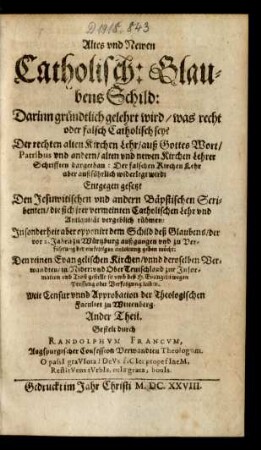 Altes vnd Newen
Catholisch: Glau-
bens Schild:
Darinn gründtlich gelehrt wird / was recht
oder falsch Catholisch sey?
Der rechten alten Kirchen Lehr / auß Gottes Wort /
Patribus vnd andern / alten vnd newen Kirchen Lehrer
Schrifften dargethan: Der falschen Kirchen Lehr
aber außführlich widerlegt wird:
Entgegen gesetzt
Den Jesuwitischen vnd andern Bäpstischen Scri-
benten / die sich irer vermeinten Catholischen Lehr vnd
Antiquität vergeblich rühmen:
Insonderheit aber opponirt dem Schild deß Glaubens / der
vor 2. Jahrn zu Würtzburg außgangen vnd zu Ver-
Den reinen Evangelischen Kirchen / vnnd derselben Ver-
wandten / in Nider vnd Ober Teutschland zur Infor-
mation vnd Trost gestelt
Mit Censur vnnd Approbation der Theologischen
Facultet zu Witenberg.
Ander Theil.
Gestelt durch
RANDOLPHVM FRANCVM,
Augspurgischer Confession Verwandten Theologum.
Gedruckt im Jahr Christi M. DC. XXVIII.